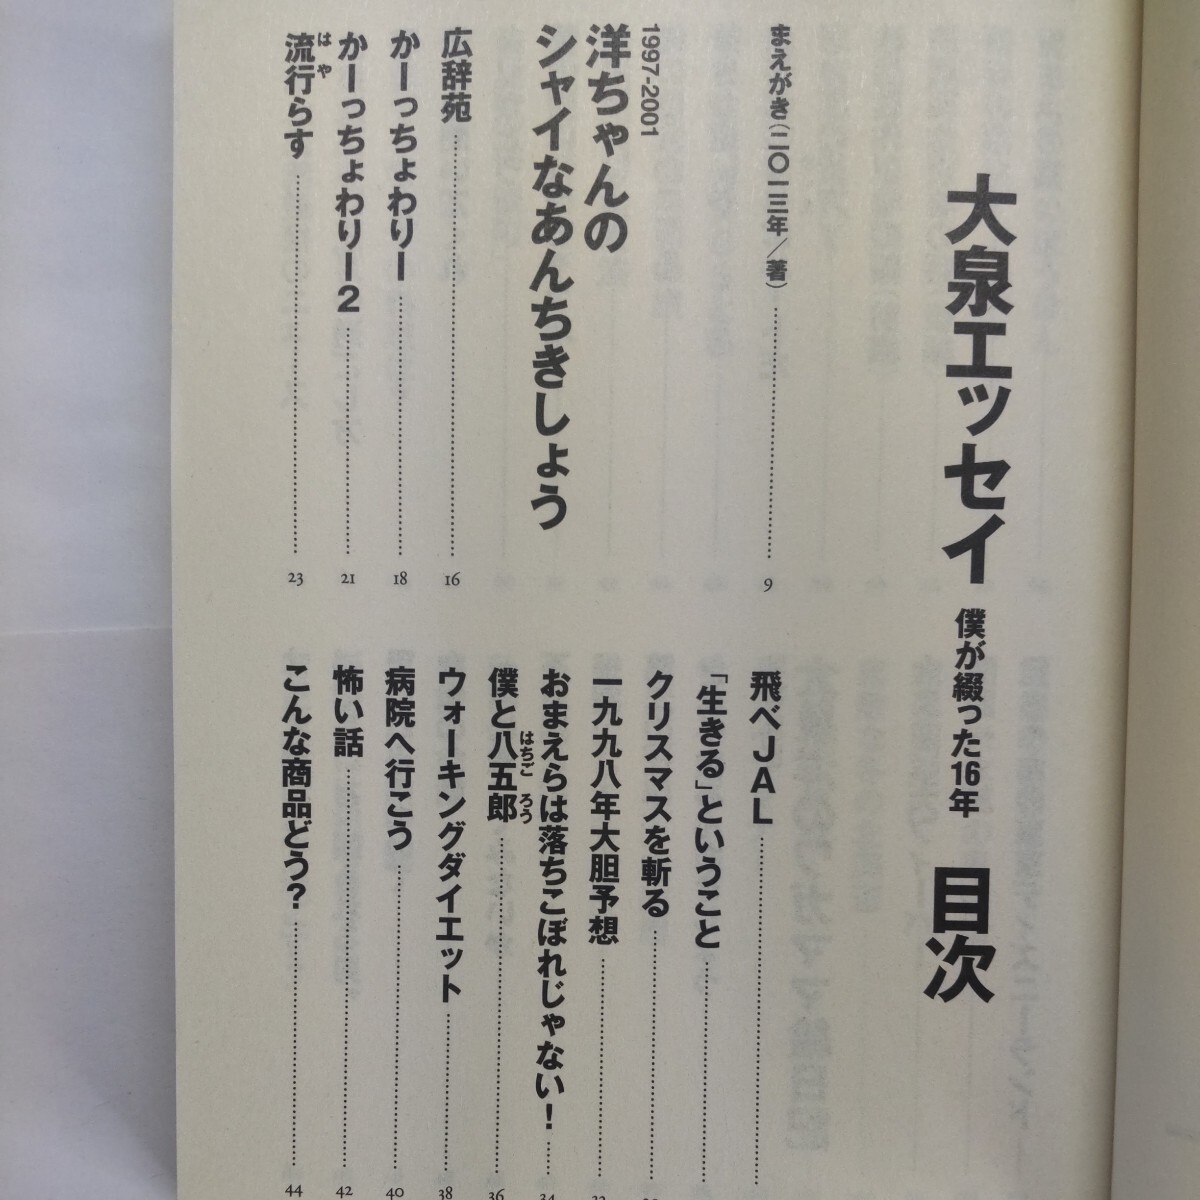 大泉エッセイ 僕が綴った16年 目次
まえがき（二〇一三年／著）………… 9
1997-2001
洋ちゃんの
シャイなあんちきしょう
広辞苑………… 16
かーっちょわりー………… 18
かーっちょわりー2………… 21
流行らす………… 23
はや
飛べJAL…………
「生きる」ということ…………
クリスマスを斬る…………
一九九八年大胆予想…………
おまえらは落ちこぼれじゃない！………… 34
僕と八五郎………… 36
はちごろう
ウォーキングダイエット………… 38
病院へ行こう………… 40
怖い話………… 42
こんな商品どう？………… 44